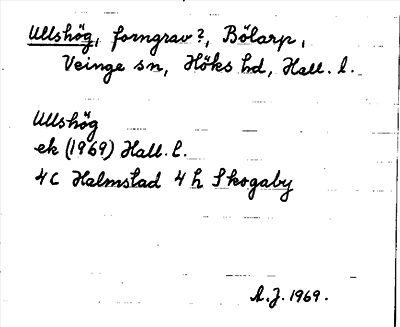 Ullshög, forngrav?, Bölarp,
Veinge sn, Höks hd, Hall. l.
Ullshög
ek (1969) Hall. l.
4C Halmstad 4 h Skogaby
A.J. 1969.